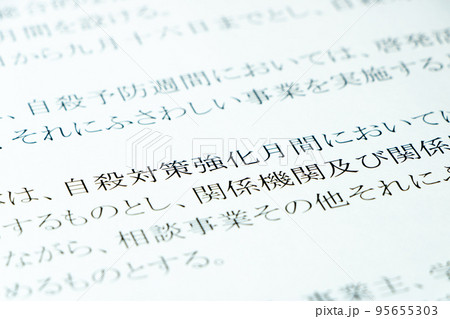 月間を設ける。
から九月十六日までとし、自殺
、自殺予防週間においては、啓発活
、それにふさわしい事業を実施する
は、自殺対策強化月間においては
するものとし、関係機関及び関係
ながら、相談事業その他それにふ
めるものとする。
事業主、学
pixta.jp - 95655303